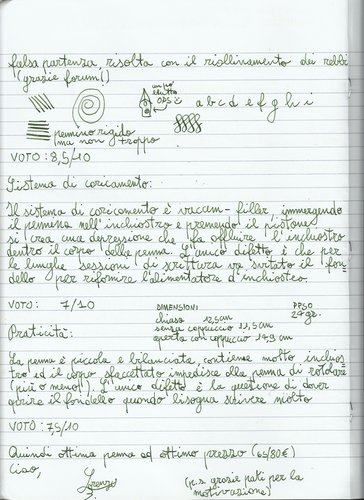 falsa partenza, risolta con il riallineamento dei rebbi
(grazie forum!)
un po'
brutto
OPS
a b c d e f g h i
pennino rigido
ma non troppo
VOTO: 8,5/10
Sistema di caricamento:
Il sistema di caricamento è vacum-filler, immergendo
il pennino nell'inchiostro e premendo il pistone
si crea una depressione che fa affluire l'inchiostro
dentro il corpo della penna. L'unico difetto è che per
le lunghe sessioni di scrittura va svitato il fon=
dello per rifornire l'alimentatore d'inchiostro.
VOTO: 7/10
DIMENSIONI
chiusa 12,5cm
senza cappuccio 11,5cm
aperta con cappuccio 14,9 cm
PESO
24 gr.
Praticità:
La penna è piccola e bilanciata, contiene molto inchios=
tro ed il corpo sfaccettato impedisce alla penna di rotolare
(più o meno!). L'unico difetto è la questione di dover
aprire il fondello quando bisogna scrivere molto
VOTO: 7,5/10
Quindi ottima penna ad ottimo prezzo (65/80€)
Ciao,
Lorenzo
(p.s. grazie pati per la
motivazione)